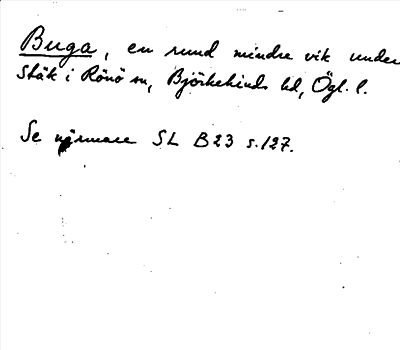 Buga, en rund mindre vik under
Stäk i Rönö sn, Björkekinds hd, Ögl. l.
Se närmare SL B23 s.127.